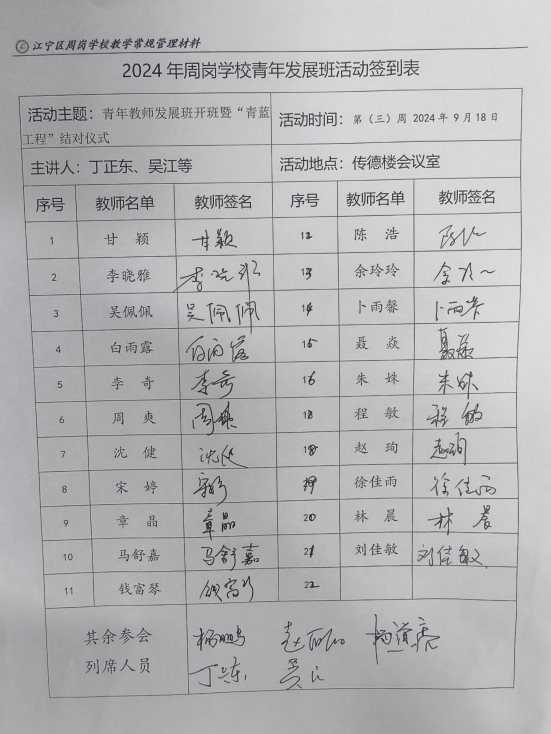 江宁区周岗学校教学常规管理材料
2024年周岗学校青年发展班活动签到表
活动主题：青年教师发展班开班暨“青蓝 活动时间：第（三）周 2024年9月18日
工程”结对仪式
主讲人：丁正东、吴江等 活动地点：传德楼会议室
序号 教师名单 教师签名 序号 教师名单 教师签名
1 甘颖 甘颖 12 陈浩
2 李晓雅 李晓雅 13 余玲玲
3 吴佩佩 吴佩佩 14 卜雨馨 卜雨
4 白雨露 白雨露 15 聂焱 聂焱
5 李奇 李奇 16 朱姝 朱姝
6 周爽 周爽 18 程敏 程敏
7 沈健 沈健 18 赵珣 赵珣
8 宋婷 宋婷 19 徐佳雨 徐佳雨
9 章晶 章晶 20 林晨 林晨
10 马舒嘉 马舒嘉 21 刘佳敏 刘佳敏
11 钱富琴 钱富琴 22
其余参会 杨鹏
列席人员